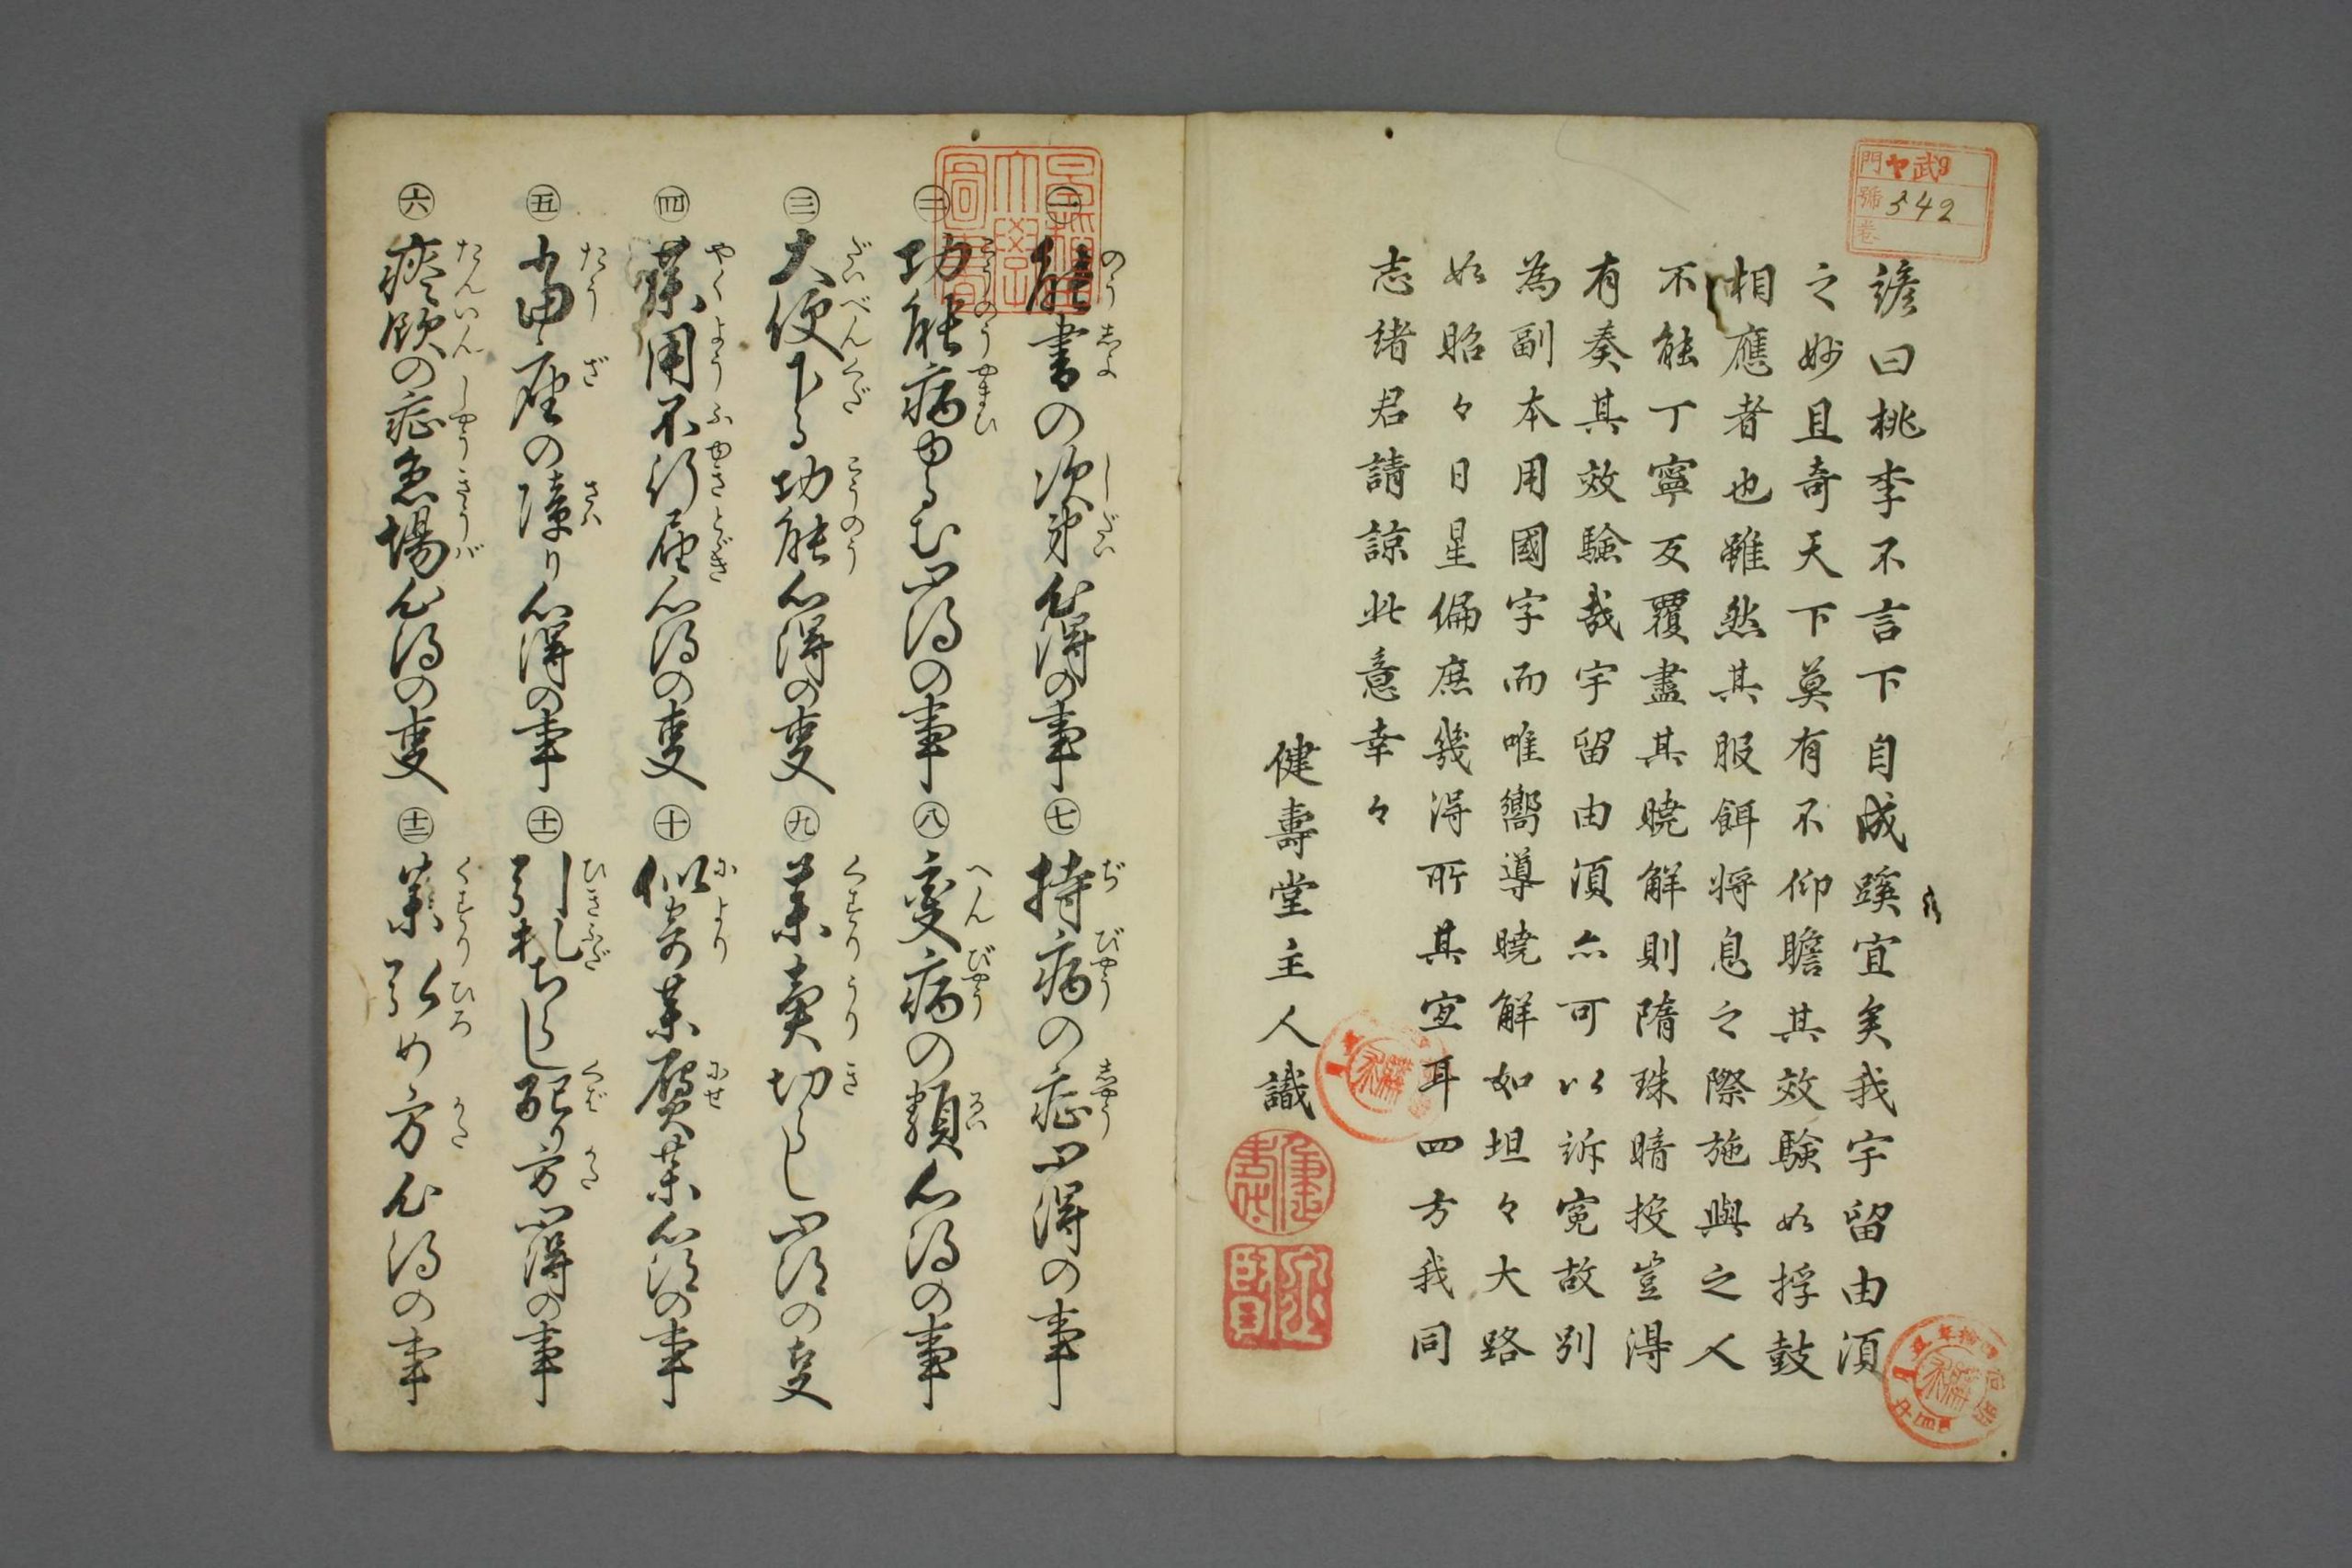 諺曰桃李不言下自成蹊宜矣我宇留由須
之妙且奇天下莫有不仰瞻其效驗如捊鼓
相應者也雖然其服餌将息之際施與之人
不能丁寧反覆盡其曉解則隋珠暗投豈得
有奏其效驗哉宇留由須亦可以訴寃故別
為副本用國字而唯嚮導曉解如坦々大路
如昭々日星偏庶幾得所其宜耳四方我同
志諸君請諒此意幸々
健壽堂主人識
門 ヤ武9
號 542
卷
㊀能書の次第心得の事
のうしよ しだい
㊁功能病ゆるむ心得の事
こうのうやまひ
㊂大便下る功能心得の叓
だいべんくだ こうのう
㊃薬用不行届心得の叓
やくようふゆきとゞき
㊄當座の障り心得の事
たうざ さハ
㊅痰飲の症急場心得の叓
たんいん しやうきうバ
㊆持病の症心得の事
ぢびやう しやう
㊇変病の類心得の事
へんびやう るい
㊈薬賣切らし心得の叓
くすりうりき
㊉似寄薬贋薬心得の事
により にせ
十一 引札ちらし配り方心得の事
ひきふだ くばかた
十二 薬弘め方心得の事
くすりひろ かた